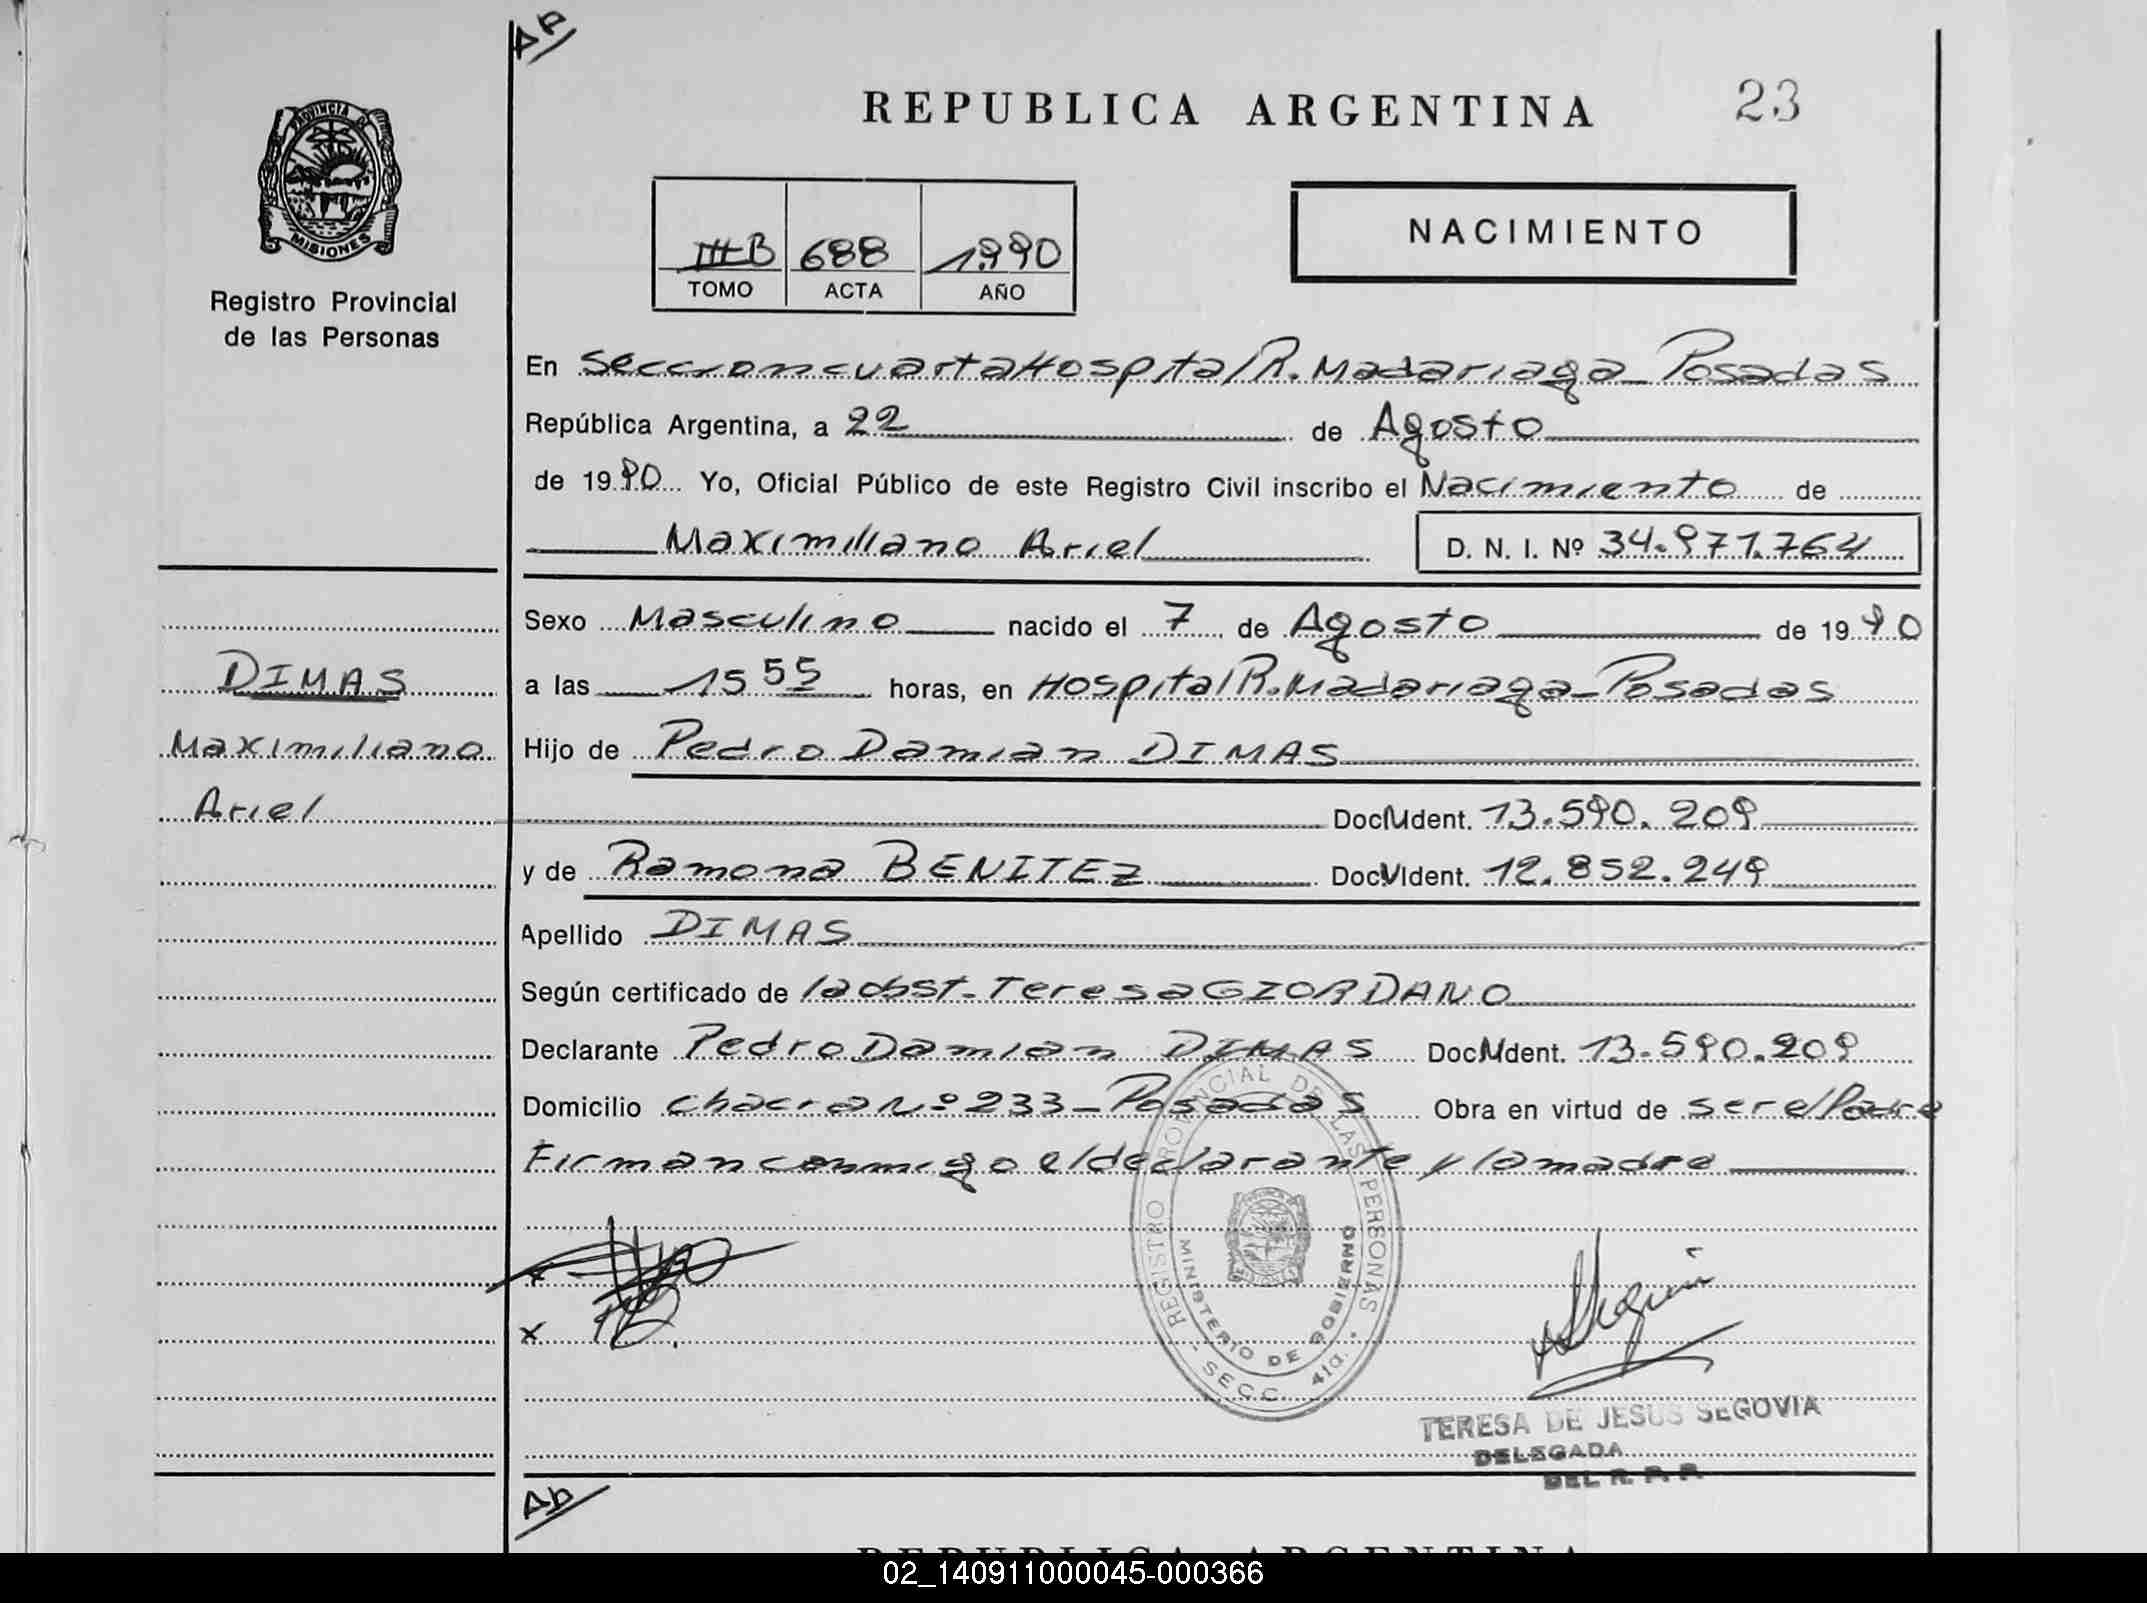 Ap
REPUBLICA ARGENTINA
23
PROVINCIA DE
MISIONES
Registro Provincial
de las Personas
III B 688 1990
TOMO ACTA AÑO
NACIMIENTO
En Seccion cuarta Hospital R. Madariaga - Posadas
República Argentina, a 22 de Agosto
de 1990 Yo, Oficial Público de este Registro Civil inscribo el Nacimiento de
Maximiliano Ariel D. N. I. Nº 34.971.764
Sexo Masculino nacido el 7 de Agosto de 1990
a las 15 55 horas, en Hospital R. Madariaga - Posadas
Hijo de Pedro Damian DIMAS
Doc. Ident. 13.590.209
y de Ramona BENITEZ Doc. Ident. 12.852.249
Apellido DIMAS
Según certificado de la obst. Teresa GIORDANO
Declarante Pedro Damian DIMAS Doc. Ident. 13.590.209
Domicilio chacra Nº 233 - Posadas Obra en virtud de ser el Padre
Firman conmigo el declarante y la madre
DIMAS
Maximiliano
Ariel
REGISTRO PROVINCIAL DE LAS PERSONAS
MINISTERIO DE GOBIERNO
- SECC. 4ta. -
TERESA DE JESUS SEGOVIA
DELEGADA
DEL R. P. P.
Ab
REPUBLICA ARGENTINA
02_140911000045-000366